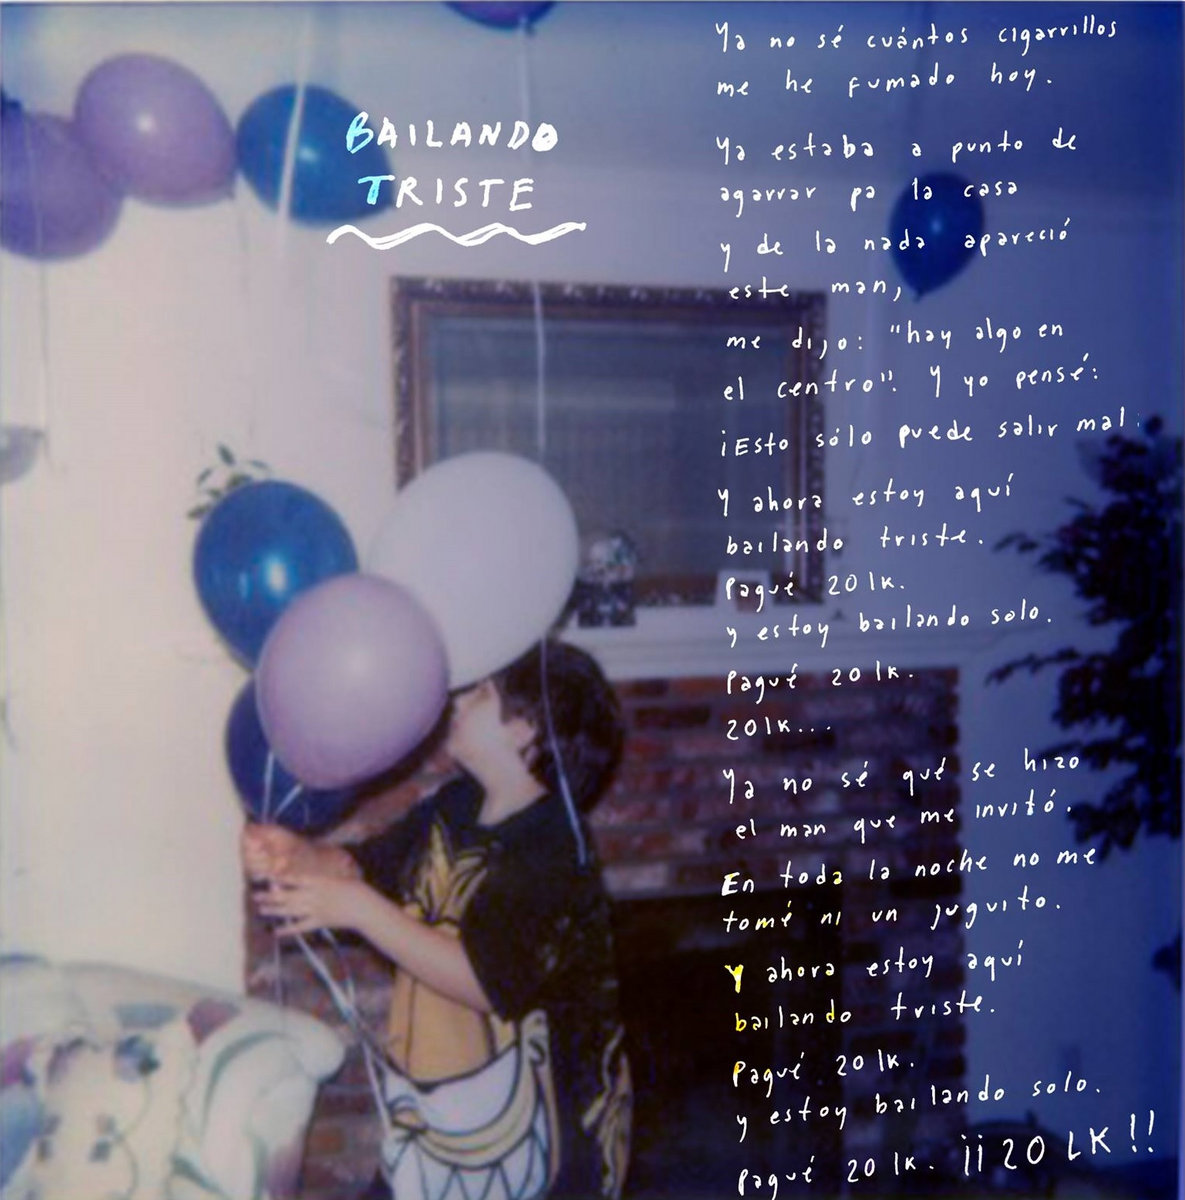 BAILANDO
TRISTE
Ya no sé cuántos cigarrillos
me he fumado hoy.
Ya estaba a punto de
agarrar pa la casa
y de la nada apareció
este man,
me dijo: "hay algo en
el centro". Y yo pensé:
¡Esto sólo puede salir mal.
Y ahora estoy aquí
bailando triste.
Pagué 20 lk.
y estoy bailando solo.
Pagué 20 lk.
20lk...
Ya no sé qué se hizo
el man que me invitó.
En toda la noche no me
tomé ni un juguito.
Y ahora estoy aquí
bailando triste.
Pagué 20 lk.
y estoy bailando solo.
Pagué 20 lk. ¡¡20 LK!!